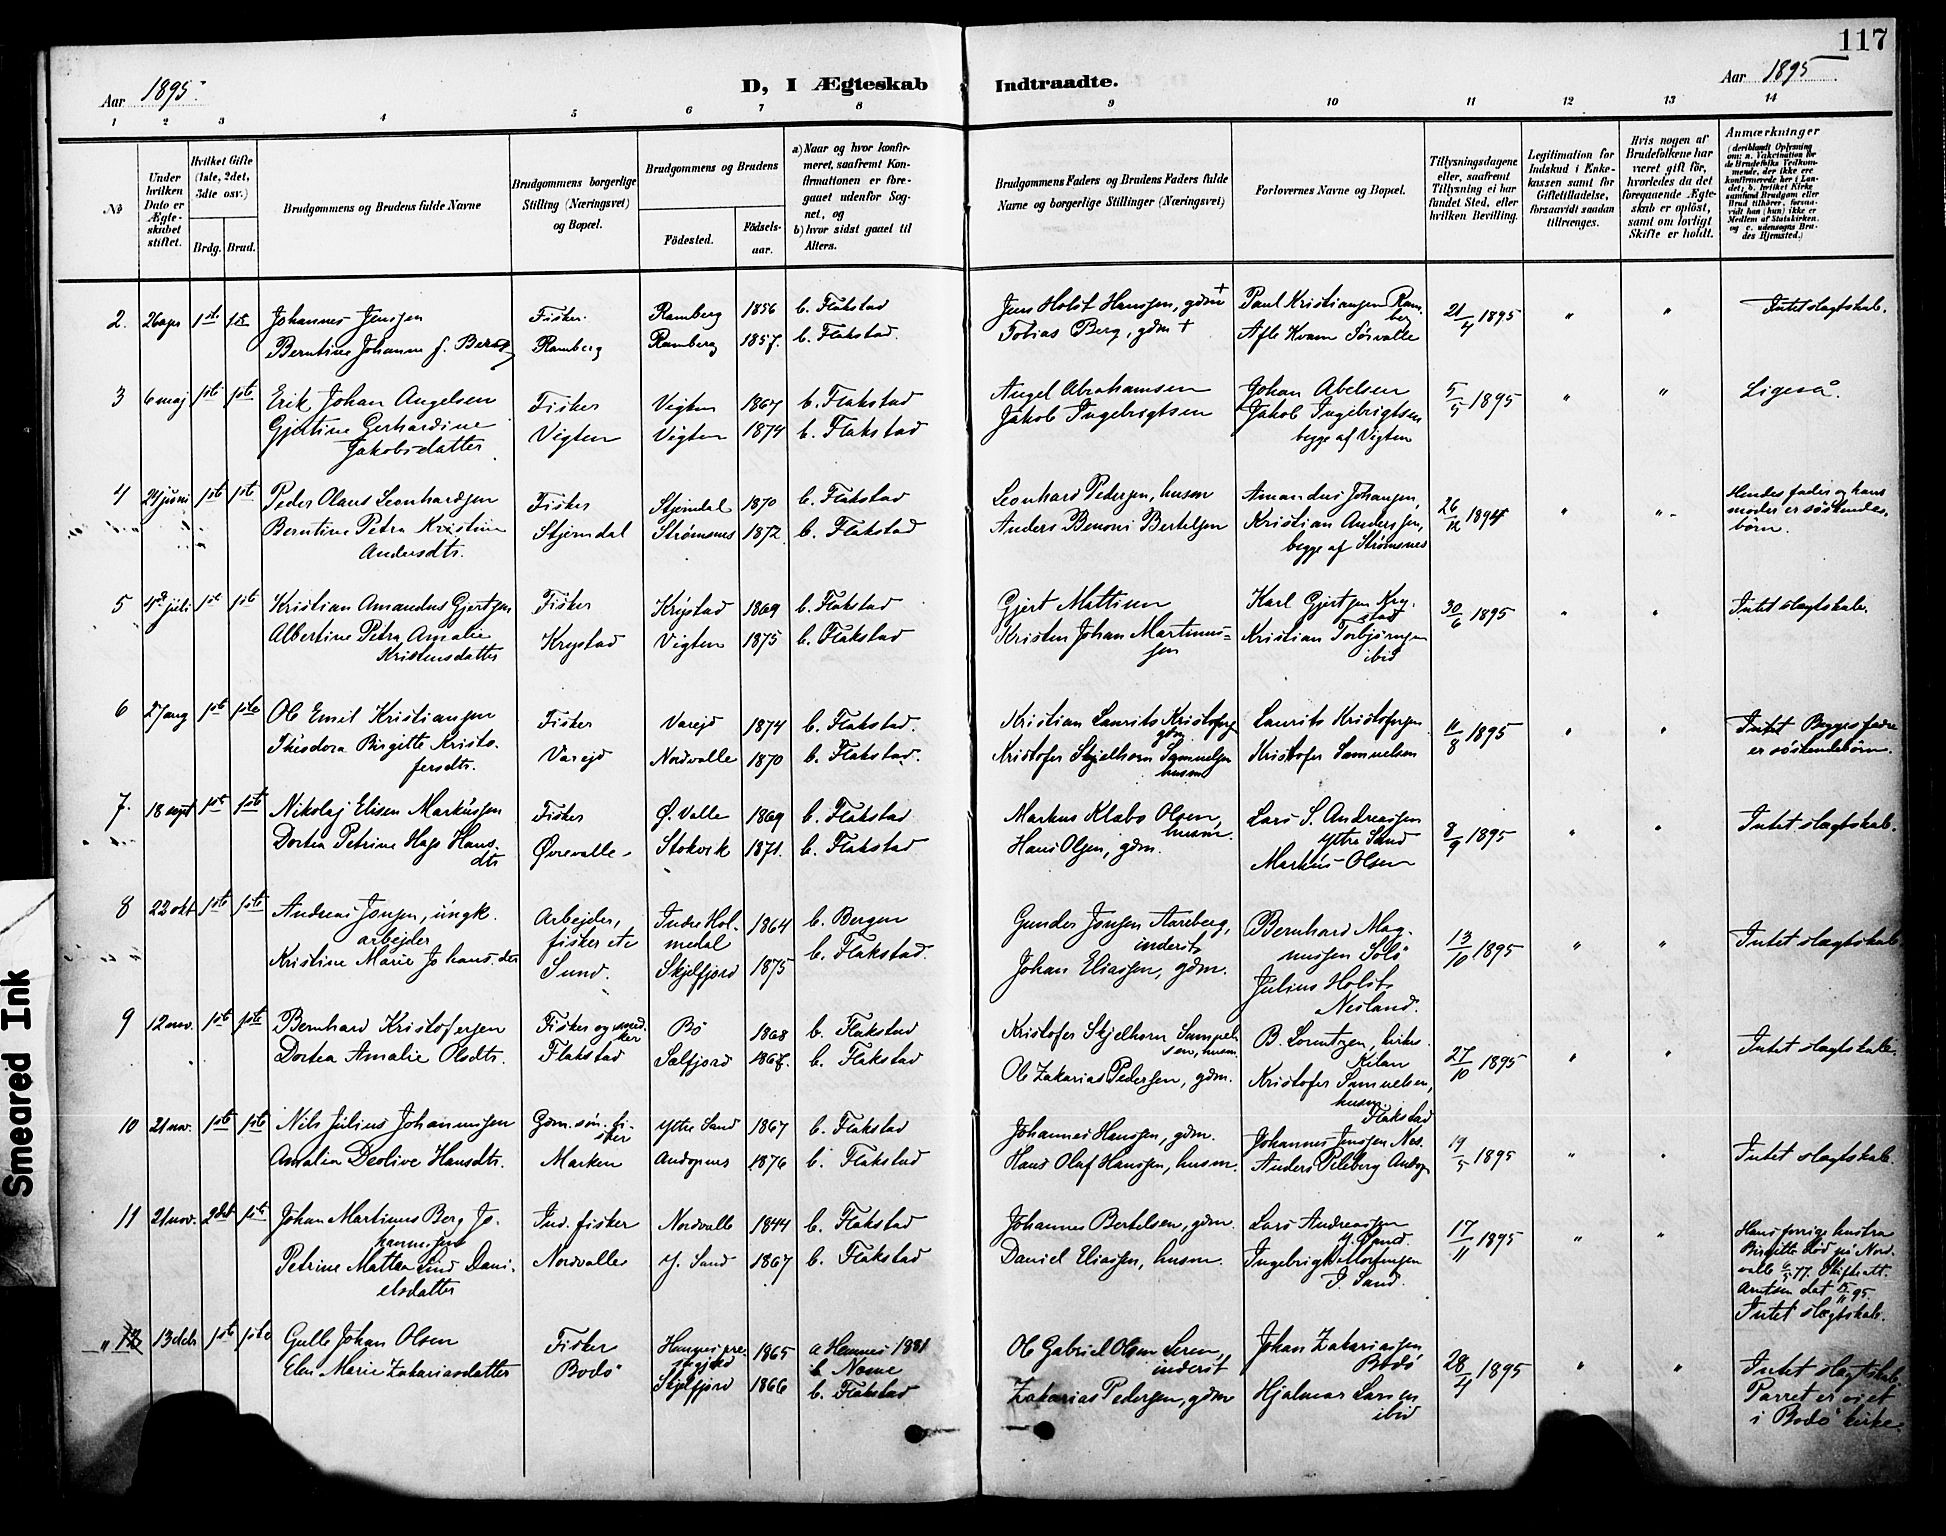 117
Aar 1895.
D, I Ægteskab Indtraadte.
Aar 1895
1 2 3 4 5 6 7 8 9 10 11 12 13 14
No
Under hvilken Dato er Ægteskabet stiftet.
Hvilket Gifte (1ste, 2det, 3die osv.)
Brdg. Brud.
Brudgommens og Brudens fulde Navne
Brudgommens borgerlige Stilling (Næringsvei) og Bopæl.
Brudgommens og Brudens
Födested.
Födselsaar.
a) Naar og hvor konfirmeret, saafremt Konfirmationen er foregaaet udenfor Sognet, og
b) hvor sidst gaaet til Alters.
Brudgommens Faders og Brudens Faders fulde Navne og borgerlige Stillinger (Næringsvei)
Forlovernes Navne og Bopæl.
Tillysningsdagene eller, saafremt Tillysning ei har fundet Sted, efter hvilken Bevilling.
Legitimation for Indskud i Enkekassen samt for Giftetilladelse, forsaavidt saadan tiltrænges.
Hvis nogen af Brudefolkene har været gift för, hvorledes da det foregaaende Ægteskab er oplöst, samt om lovligt Skifte er holdt.
Anmærkninger (deriblandt Oplysning om: a. Vakcination for de Brudefolks Vedkommende, der ikke ere konfirmerede her i Landet; b. hvilket Kirkesamfund Brudgom eller Brud tilhörer, forsaavidt han (hun) ikke er Medlem af Statskirken, og c. udensogns Brudes Hjemsted.)
2. 26 apr 1ste 1ste Johannes Jensen Fisker. Ramberg 1856 b. Flakstad Jens Holst Hanssen, gdm + Paul Kristiansen Ramberg 21/4 1895 " " Intet slægtskab.
Berntine Johanne J. Berg Ramberg Ramberg 1857. b. Flakstad. Tobias Berg, gdm + Kvam Sörvalle
3 6 maj 1ste 1ste Erik Johan Angelsen Fisker Vigten 1867 b. Flakstad Angel Abrahamsen Johan Abelsen 5/5 1895 " " Ligeså.
Gjertine Gerhardine Jakobsdatter Vigten Vigten 1874 b. Flakstad Jakob Ingebrigtsen Jakob Ingebrigtsen
begge af Vigten
4 24 juni 1ste 1ste Peder Olaus Leonhardsen Fisker Stjerndal 1870 b. Flakstad Leonhard Pedersen, husm Amandus Johansen, 26/12 1894 " " Hendes fader og hans moder er söskendebörn.
Berntine Petra Kristine Andersdtr. Stjerndal Strømsnes 1872. b. Flakstad Anders Benoni Bertelsen Kristian Anderssen,
begge af Strømsnes
5 4de juli 1ste 1ste Kristian Amandus Gjertsen Fisker Krystad 1869 b. Flakstad Gjert Mattisen Karl Gjertsen Krystad 30/6 1895 " " Intet slægtskab.
Albertine Petra Amalie Kristensdatter Krystad Vigten 1875 b. Flakstad Kristen Johan Martinussen Kristian Torbjörnsen
ibid
6 27 aug 1ste 1ste Ole Emil Kristiansen Fisker Vareid 1874 b. Flakstad. Kristian Laurits Kristofersen gdm Laurits Kristofersen 11/8 1895 " " Intet Begges fædre er söskendebörn.
Theodora Birgitte Kristofersdtr. Vareid Nordvalle 1870 b. Flakstad. Kristofer Skjelhorn Samuelsen husm Kristofer Samuelsen
7. 18 sept 1ste 1ste Nikolaj Elisen Markussen Fisker Ø. Valle 1869 b. Flakstad Markus Klæbo Olsen, husm. Lars S. Andreassen Ytre Sand 8/9 1895 " " Intet slægtskab.
Dortea Petrine Hage Hansdtr Øvrevalle Stokvik 1871. b. Flakstad Hans Olsen, gdm. Markus Olsen
8 22 okt 1ste 1ste Andreas Jonsen, ungk. arbejder Arbejder, fisker etc Indre Holmedal 1864 b. Bergen Gunder Jonsen Aareberg, inderst Bernhard Magnussen Solö 13/10 1895 " " Intet slægtskab.
Kristine Marie Johans.der Sund. Skjelfjord 1875 b. Flakstad. Johan Eliassen, gdm. Julius Holst Nesland.
9 12 nov. 1ste 1ste Bernhard Kristofersen Fisker og snedker Bö 1868 b. Flakstad Kristofer Skjelhorn Samuelsen, husm. B. Lorentzen, kirkes. Kilan 27/10 1895 " " Intet slægtskab.
Dortea Amalie Olsdtr. Flakstad Selfjord 1868. b. Flakstad Ole Zakarias Pedersen, gdm. Kristofer Samuelsen, husm Flakstad
10 21 nov. 1ste 1ste Nils Julius Johannessen Gdm. søn. fisker Ytre Sand 1867 b. Flakstad Johannes Hanssen, gdm. Johannes Jenssen Nes. 19/5 1895 " " Intet slægtskab.
Amalia Deolive Hansdtr. Marken Andopnes 1876 b. Flakstad Hans Olaf Hanssen, husm. Anders Peleberg Andop
11 21 nov. 2det 1ste Johan Martinus Berg Johannessen Ind. fisker Nordvalle 1844 b. Flakstad Johannes Bertelsen, gdm. Lars Andreassen Y. Sand. 17/11 1895 " " Hans forrige hustru Birgitte död på Nordvalle 6/5 77. Skifteatt. Arntsen dat 15/11 95. Intet slægtskab.
Petrine Mattea Lind Danielsdatter Nordvalle Y. Sand 1867 b. Flakstad Daniel Eliassen, husm. Ingebrigt Mortensen I. Sand.
" 12 13 deb 1ste 1ste Gulle Johan Olsen Fisker Hemnes prestegjeld 1865 a Hemnes 1881 b Nesne Ole Gabriel Olsen Leren, inderst Johan Zakariassen Bodö 28/4 1895 " " Intet slægtskab. Parret er viet i Bodö kirke.
Elen Marie Zakariasdatter Bodö Skjelfjord 1866 b. Flakstad Zakarias Pedersen, gdm Hjalmar Larsen ibid
Smeared Ink